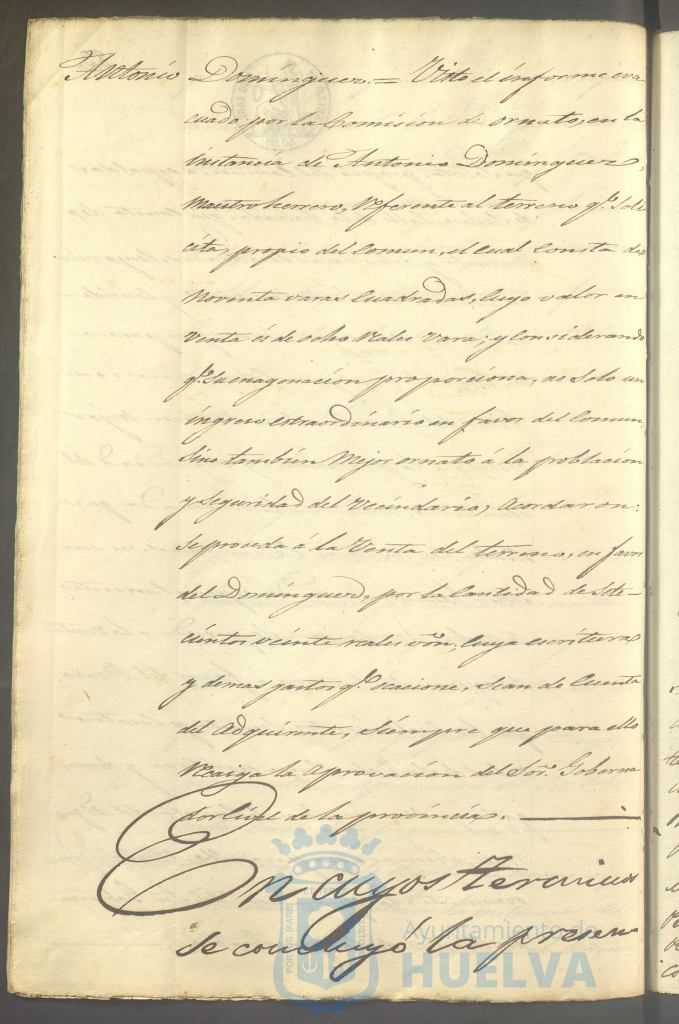 Antonio Dominguez.= Visto el informe eva-
cuado por la Comision de ornato, en la
instancia de Antonio Dominguez,
maestro herrero, referente al terreno q.e soli
cita, propio del Comun, el cual Consta de
noventa varas Cuadradas, cuyo valor en
venta és de ocho reales vara; y Considerando
q.e su enagenacion proporciona, no solo un
ingreso extraordinario en favor del Comun,
sino tambien mejor ornato á la poblacion
y seguridad del Vecindario, acordaron:
se proceda á la Venta del terreno, en favor
del Dominguez, por la Cantidad de sete-
cientos veinte reales von, cuya escritura
y demas gastos q.e ocacione, sean de Cuenta
del adquirente, siempre que para ello
recaiga la aprovacion del Sor. Goberna
dor Civil de la provincia.
En cuyos terminos
se concluyó la presen
PORTUS MARIS
Ayuntamiento de
HUELVA